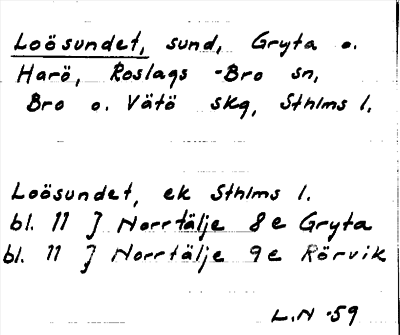 Loösundet, sund, Gryta o.
Harö, Roslags-Bro sn,
Bro o. Vätö skg, Sthlms l.
Loösundet, ek Sthlms l.
bl. 11 } Norrtälje 8e Gryta
bl. 11 } Norrtälje 9e Rörvik
L.N -59